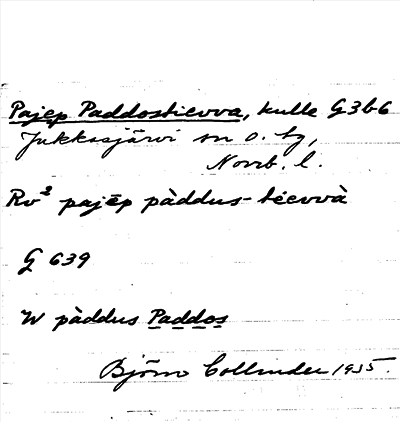 Pajēp Paddostievva, kulle G3b6
Jukkasjärvi sn o. tg,
Norrb. l.
Rv² pajēp pàddus-tievvà
G 639
W pàddus Paddos
Björn Collinder 1935.